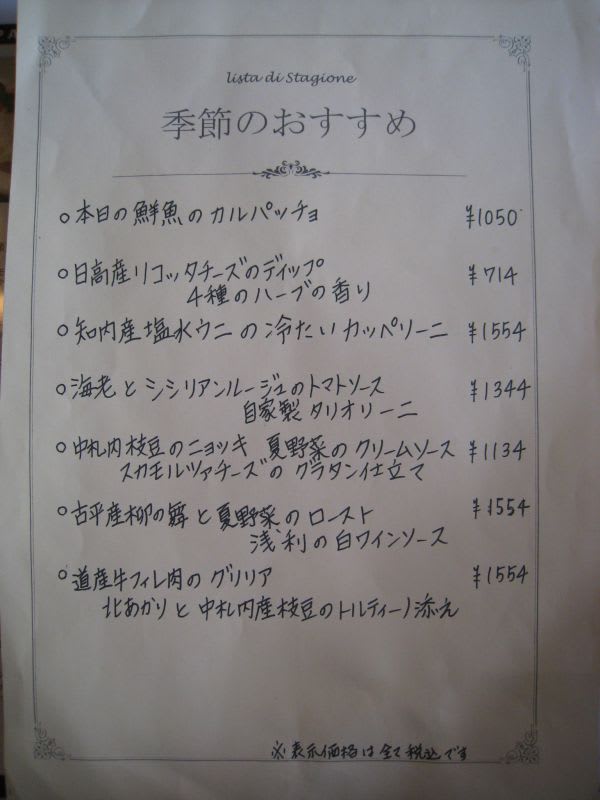 lista di Stagione
季節のおすすめ
○本日の鮮魚のカルパッチョ ¥1050
○日高産リコッタチーズのディップ ¥714
4種のハーブの香り
○知内産塩水ウニの冷たいカッペリーニ ¥1554
○海老とシシリアンルージュのトマトソース ¥1344
自家製タリオリーニ
○中札内枝豆のニョッキ 夏野菜のクリームソース ¥1134
スカモルツァチーズのグラタン仕立て
○古平産柳の舞と夏野菜のロースト ¥1554
浅利の白ワインソース
○道産牛フィレ肉のグリリア ¥1554
北あかりと中札内産枝豆のトルティーノ添え
※表示価格は全て税込です